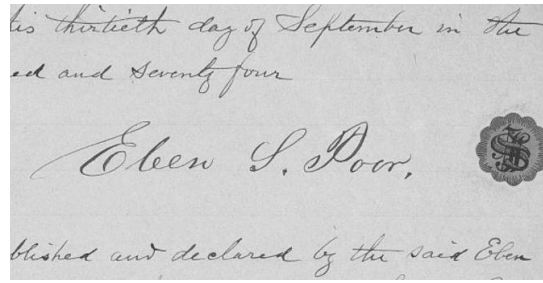 this thirtieth day of September in the
ed and seventy four
Eben S. Poor.
blished and declared by the said Eben